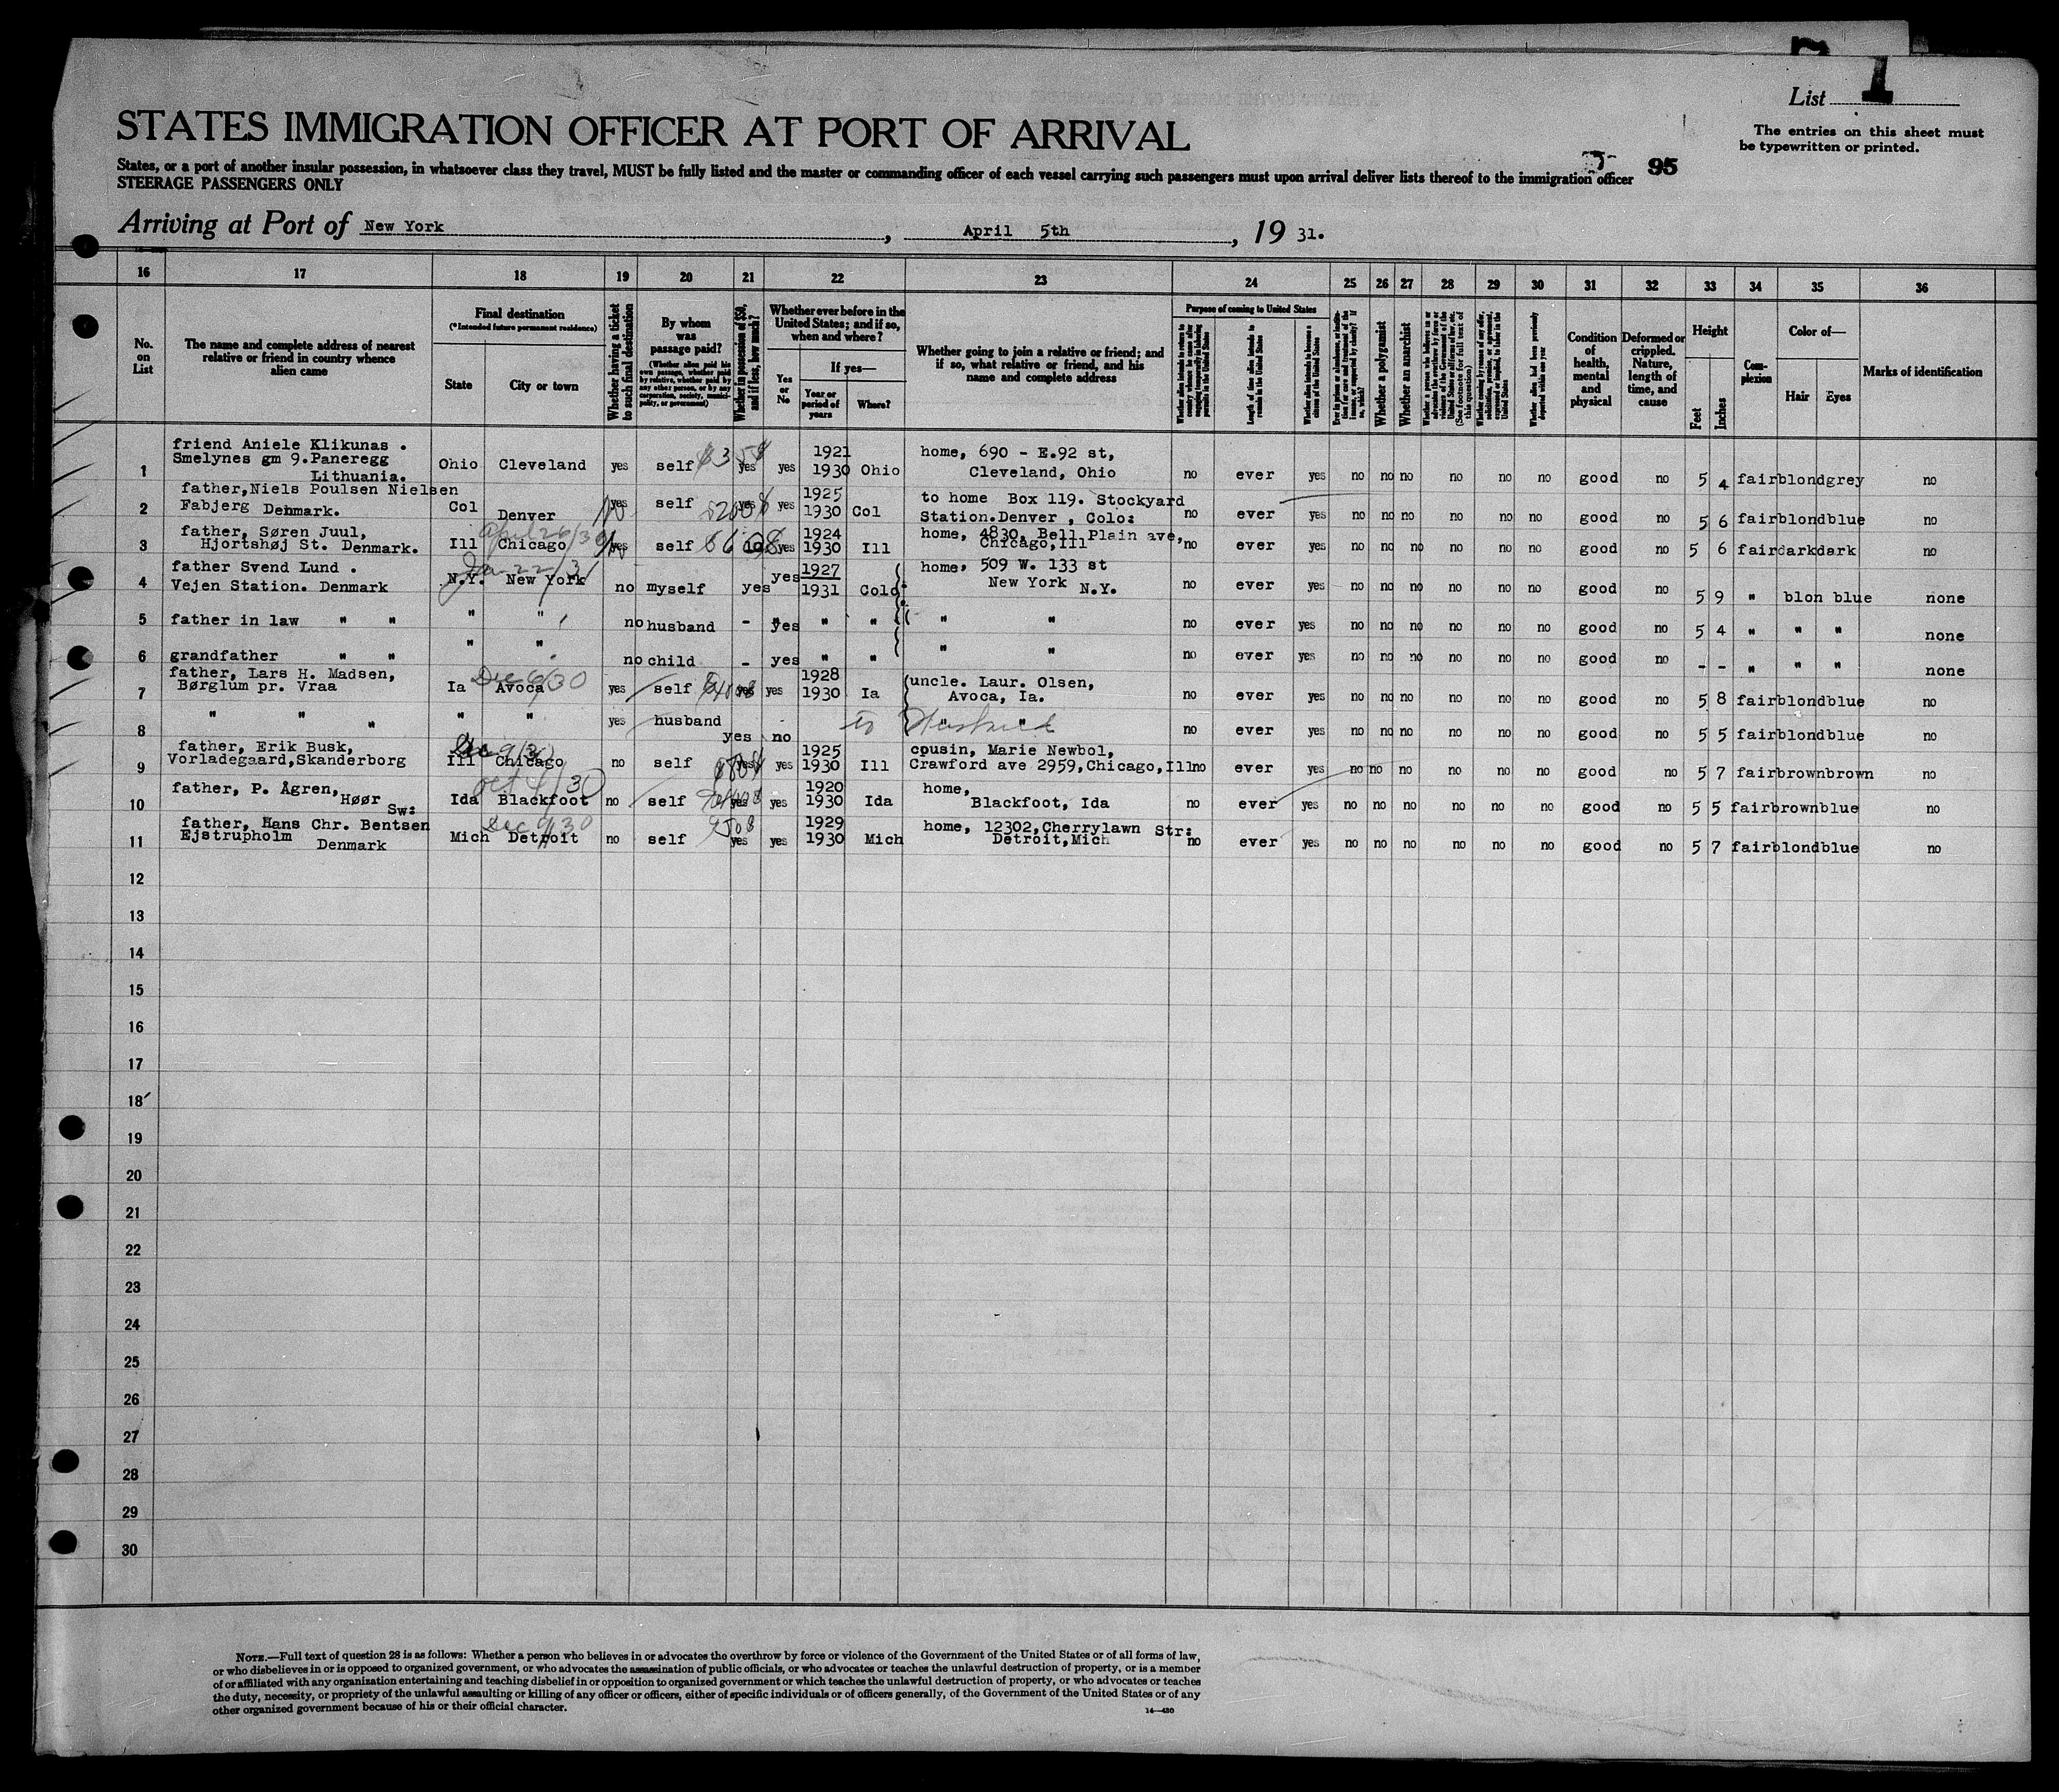 List 1
The entries on this sheet must
be typewritten or printed.
STATES IMMIGRATION OFFICER AT PORT OF ARRIVAL
States, or a port of another insular possession, in whatsoever class they travel, MUST be fully listed and the master or commanding officer of each vessel carrying such passengers must upon arrival deliver lists thereof to the immigration officer 95
STEERAGE PASSENGERS ONLY
Arriving at Port of New York, April 5th, 19 31.
16 17 18 19 20 21 22 23 24 25 26 27 28 29 30 31 32 33 34 35 36
No. on List
The name and complete address of nearest relative or friend in country whence alien came
Final destination
(*Intended future permanent residence)
State
City or town
Whether having a ticket to such final destination
By whom was passage paid?
(Whether alien paid his own passage, whether paid by relative, whether paid by any other person, or by any corporation, society, municipality, or government)
Whether in possession of $50, and if less, how much?
Whether ever before in the United States; and if so, when and where?
Yes or No
If yes—
Year or period of years
Where?
Whether going to join a relative or friend; and if so, what relative or friend, and his name and complete address
Purpose of coming to United States
Length of time alien intends to remain in the United States
Whether alien intends to become a citizen of the United States
Whether a polygamist
Whether an anarchist
Whether alien had been previously deported within one year
Condition of health, mental and physical
Deformed or crippled. Nature, length of time, and cause
Height
Feet
Inches
Complexion
Color of—
Hair
Eyes
Marks of identification
1 friend Aniele Klikunas . Smelynes gm 9.Paneregg Lithuania. Ohio Cleveland yes self yes yes 1921 1930 Ohio home, 690 - E.92 st, Cleveland, Ohio no ever yes no no no no no no good no 5 4 fair blond grey no
2 father,Niels Poulsen Nielsen Fabjerg Denmark. Col Denver yes self yes yes 1925 1930 Col to home Box 119. Stockyard Station.Denver , Colo: no ever yes no no no no no no good no 5 6 fair blond blue no
3 father, Søren Juul, Hjortshøj St. Denmark. Ill Chicago April 26/30 self yes 1924 1930 Ill home, 4830, Bell Plain ave, Chicago,Ill no ever yes no no no no no no good no 5 6 fair dark dark no
4 father Svend Lund . Vejen Station. Denmark N.Y. New York Jan 22/31 no myself yes yes 1927 1931 Colo home, 509 W. 133 st New York N.Y. no ever yes no no no no no no good no 5 9 " blon blue none
5 father in law " " " " no husband - yes " " " " no ever yes no no no no no no good no 5 4 " " " none
6 grandfather " " " " no child - yes " " " " no ever yes no no no no no no good no - - " " " none
7 father, Lars H. Madsen, Børglum pr. Vraa Ia Avoca Dec 6/30 yes self yes yes 1928 1930 Ia uncle. Laur. Olsen, Avoca, Ia. no ever yes no no no no no no good no 5 8 fair blond blue no
8 " " " " " yes husband yes no to Husband " " no ever yes no no no no no no good no 5 5 fair blond blue no
9 father, Erik Busk, Vorladegaard,Skanderborg Ill Chicago no self yes yes 1925 1930 Ill cousin, Marie Newbol, Crawford ave 2959,Chicago,Ill no ever yes no no no no no no good no 5 7 fair brown brown no
10 father, P. Ågren, Høør Sw: Ida Blackfoot no self yes yes 1920 1930 Ida home, Blackfoot, Ida no ever yes no no no no no no good no 5 5 fair brown blue no
11 father, Hans Chr. Bentsen Ejstrupholm Denmark Mich Detroit no self yes yes 1929 1930 Mich home, 12302,Cherrylawn Str: Detroit,Mich no ever yes no no no no no no good no 5 7 fair blond blue no
12
13
14
15
16
17
18
19
20
21
22
23
24
25
26
27
28
29
30
NOTE.—Full text of question 28 is as follows: Whether a person who believes in or advocates the overthrow by force or violence of the Government of the United States or of all forms of law,
or who disbelieves in or is opposed to organized government, or who advocates the assassination of public officials, or who advocates or teaches the unlawful destruction of property, or is a member
of or affiliated with any organization entertaining and teaching disbelief in or opposition to organized government or which teaches the unlawful destruction of property, or who advocates or teaches
the duty, necessity, or propriety of the unlawful assaulting or killing of any officer or officers, either of specific individuals or of officers generally, of the Government of the United States or of any
other organized government because of his or their official character.
14—430